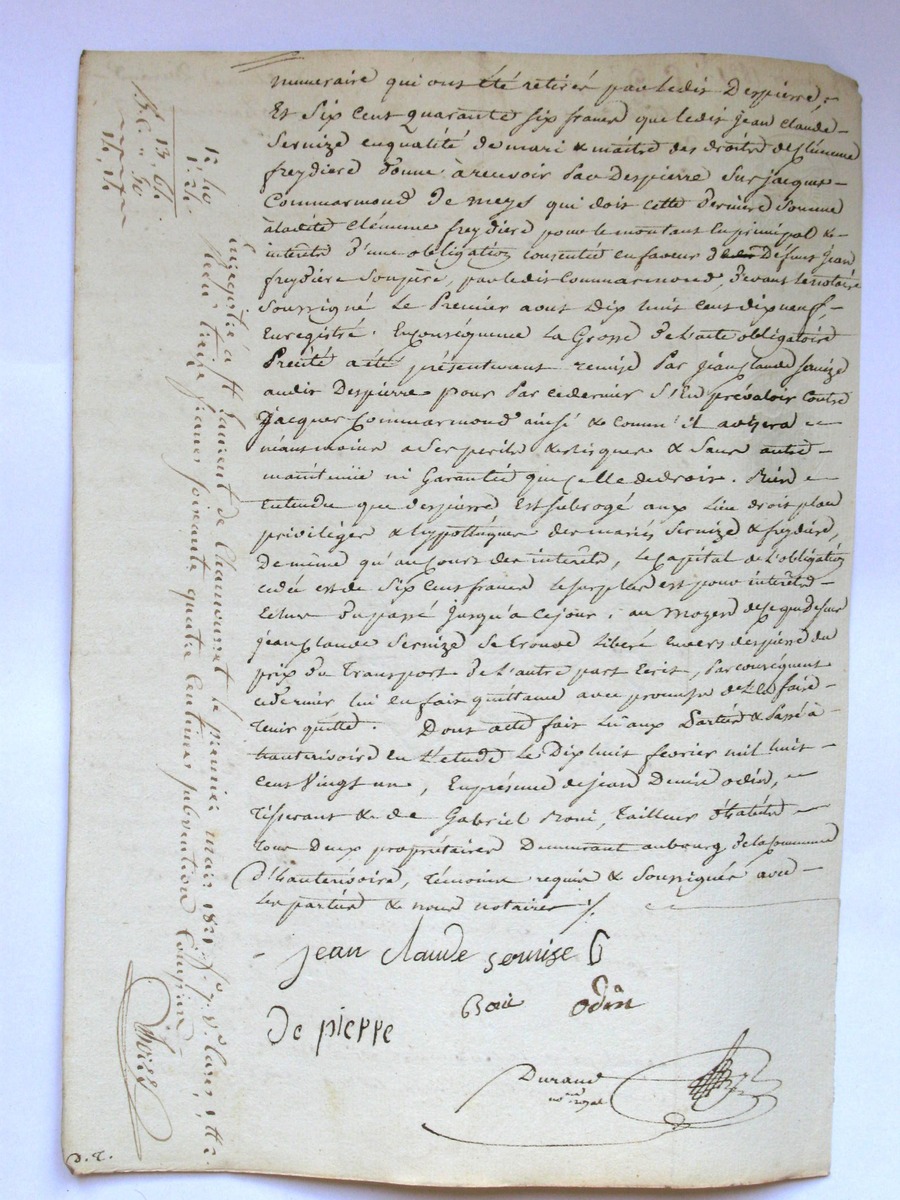 numeraire qui ont été retirés par ledit Despierre,
Et Six Cent quarante six francs que ledit jean Claude
Servize en qualité de mari & maitre des droits de Clémence
freydiere donne à recevoir par Despierre Sur jacques
Commarmond de Meys qui doit cette derniere Somme
à ladite Clémence freydiere pour le montant En principal &
intérêts d'une obligation consentie en faveur de Défunt jean
freydiere Son pere, par ledit Commarmond, devant le notaire
Soussigné Le Premier aout Dix huit cent dix neuf,
Enregistré. En conséquence La Grosse de L'acte obligatoire
Précité a été présentement remise Par jean Claude Servize
audit Despierre pour Par ce dernier S'En prévaloir Contre
jacques Commarmond ainsi & Comm'il avisera
néantmoins a Ses perils & risques & Sans autre
maintenue ni Garantie que Celle de droit. Bien
Entendu que despierre Est Subrogé aux Lieu droit place
privilèges & hypothèques des mariés Servize & freydiere,
De même qu'au Cours des intérêts, le Capital de L'obligation
cédée est de Six Cent francs Le surplus est pour intérêts
Echus du passé jusqu'a ce jour; au moyen de ce que dessus
jean Claude Servize Se trouve Libéré Envers despierre du
prix du Transport de L'autre part Ecrit, Par conséquent
ce dernier lui en fait quittance avec promesse de L'En faire
tenir quitte. Dont acte fait Lu aux Parties & Passé à
hauterivoire en L'etude Le Dix huit fevrier mil huit
Cent Vingt un, En présence de jean Denis odin,
Tisserant & de Gabriel , Tailleur d'habits
tous Deux propriétaires Demeurant au bourg de la Commune
d'hauterivoire, Témoins requis & Soussignés avec
Les parties & nous notaire ./.
jean claude servise
De pierre
odin
Durand
no.re royal
Enregistré a St Laurent de Chamousset le premier mars 1821
Reçu treize francs soixante quatre centimes subvention Comprise
12, 40
1, 24
13, 64
D. T.